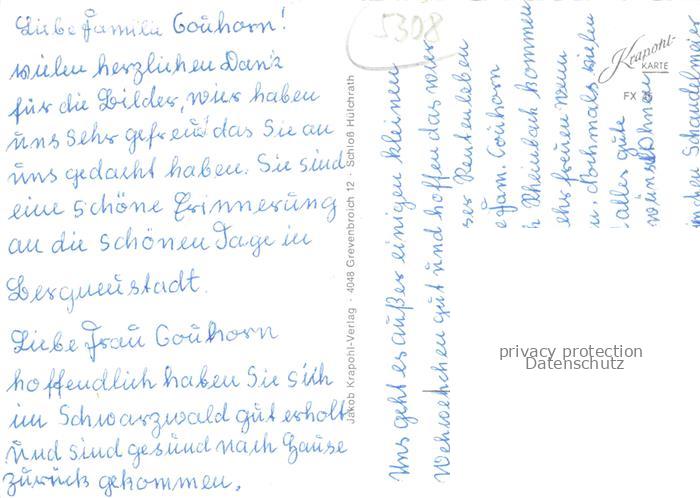 Liebe Familie Couhorn!
vielen herzlichen Dank
für die Bilder, wier haben
uns sehr gefreut das Sie an
uns gedacht haben. Sie sind
eine schöne Erinnerung
an die schönen Tage in
Bergneustadt.
Liebe Frau Couhorn
hoffendlich haben Sie sich
im Schwarzwald gut erholt
und sind gesund nach Hause
zurück gekommen.
Jakob Krapohl-Verlag · 4048 Grevenbroich 12 · Schloß Hülchrath
Uns geht es außer einigen kleinen
Wehwehchen gut und hoffen das wier
ser Rentenleben
e Fam. Couhorn
h Rheinbach kommen
ehr freuen wenn
u. Nochmals vielen
alles gute
wünscht Ohne
5308
Krapohl-
KARTE
FX
privacy protection
Datenschutz